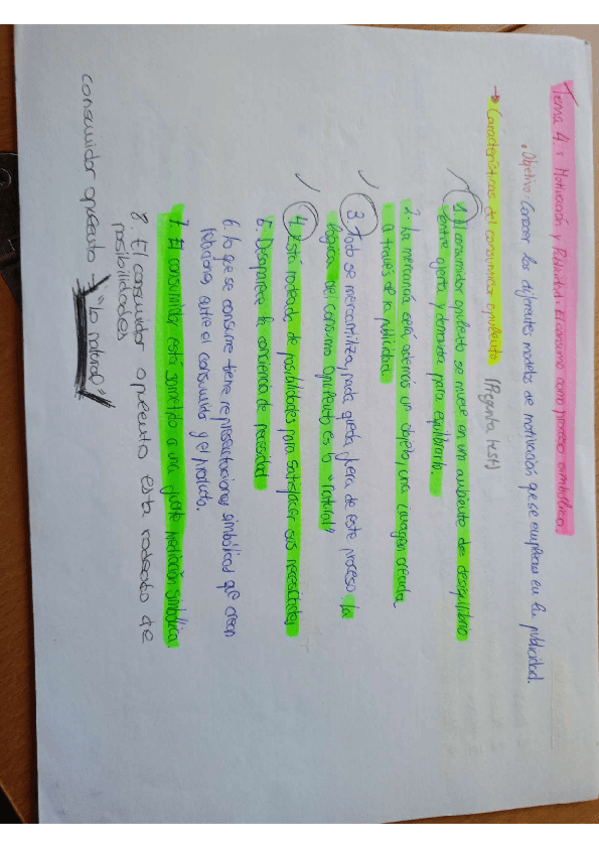 Tema 4: Motivación y Publicidad. El consumo como proceso simbólico
• Objetivo: Conocer los diferentes modelos de motivación que se emplean en la publicidad.
→ Características del consumidor opulento (Pregunta test)
1. El consumidor opulento se mueve en un ambiente de desequilibrio
entre oferta y demanda para equilibrarlo.
2. La mercancía será además un objeto, una imagen creada
a través de la publicidad
3. Todo se mercantiliza, nada queda fuera de este proceso. La
lógica del consumo opulento es lo "natural"
4. Está rodeado de posibilidades para satisfacer sus necesidades
5. Desaparece la conciencia de necesidad
6. Lo que se consume tiene representaciones simbólicas que crean
relaciones entre el consumidor y el producto.
7. El consumidor está sometido a una fuerte mediación simbólica
8. El consumidor opulento esta rodeado de
posibilidades
consumidor opulento → "lo natural"